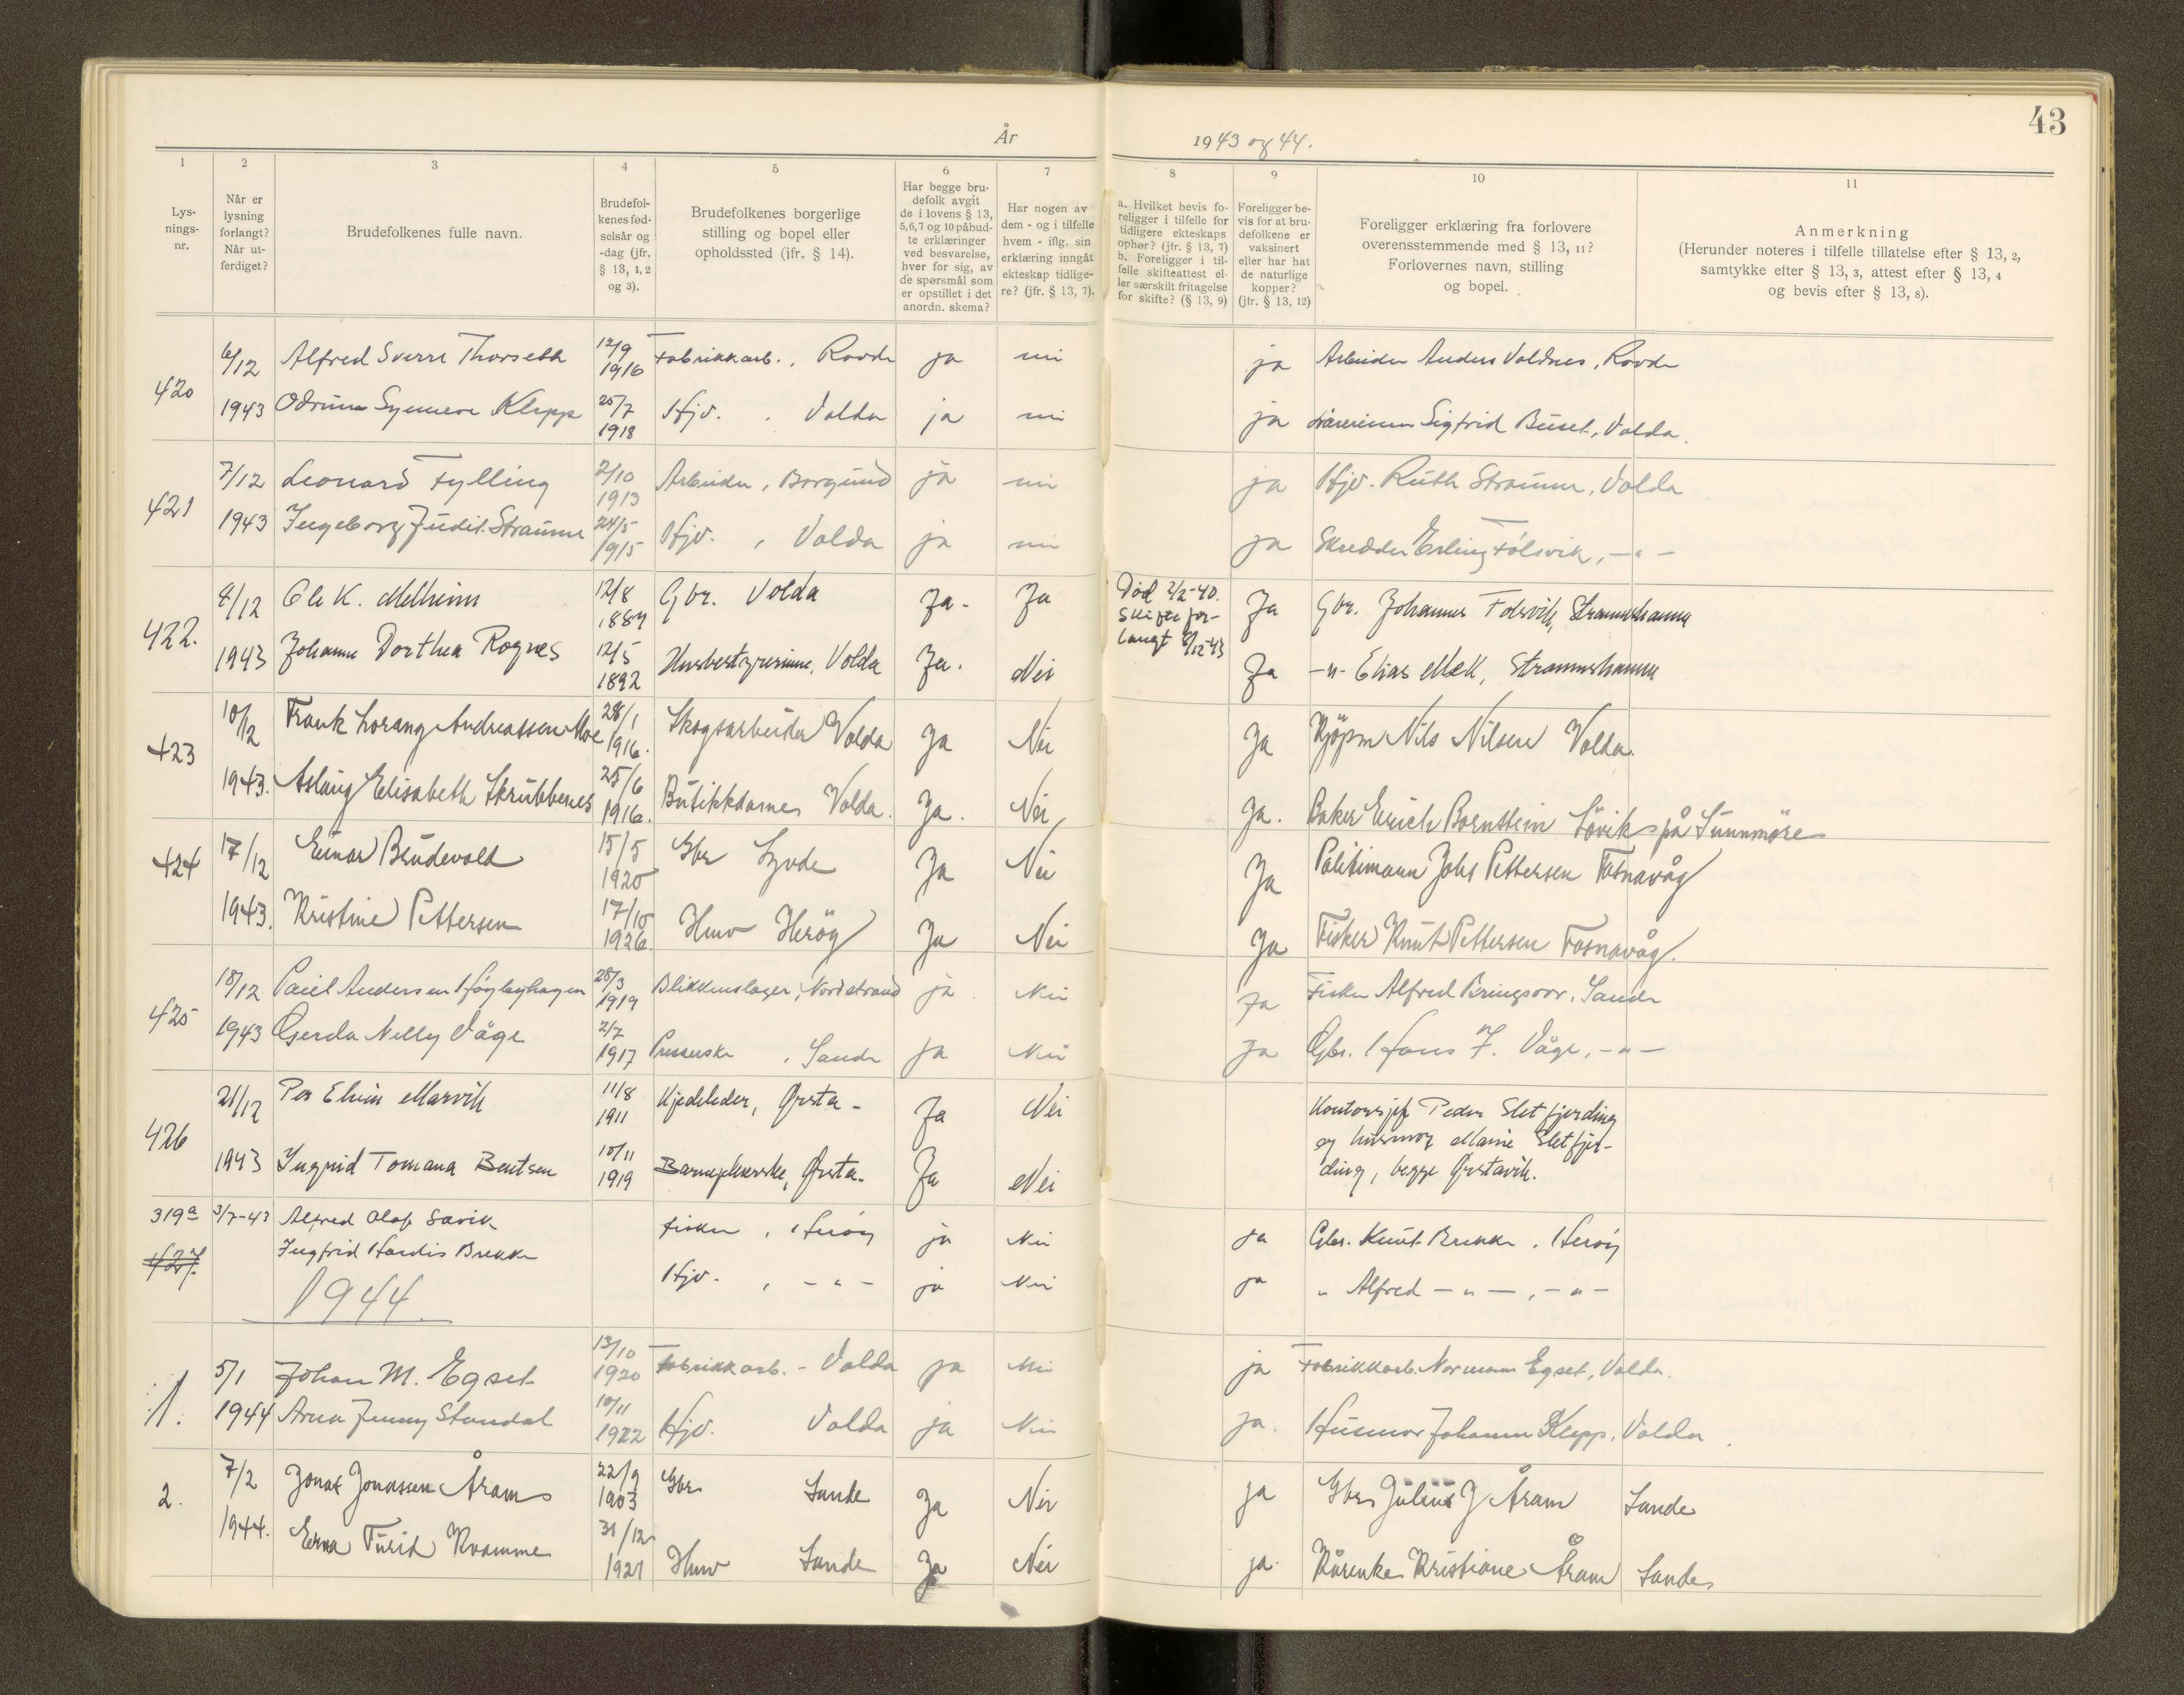 43
År 1943 og 44.
1
2
3
4
5
6
7
8
9
10
11
Lys-
nings-
nr.
Når er
lysning
forlangt?
Når ut-
ferdiget?
Brudefolkenes fulle navn.
Brudefol-
kenes fød-
selsår og
-dag (jfr.
§ 13, 1, 2
og 3).
Brudefolkenes borgerlige
stilling og bopel eller
opholdssted (jfr. § 14).
Har begge bru-
defolk avgit
de i lovens § 13,
5,6,7 og 10 påbud-
te erklæringer
ved besvarelse,
hver for sig, av
de spørsmål som
er opstillet i det
anordn. skema?
Har nogen av
dem - og i tilfelle
hvem - iflg. sin
erklæring inngåt
ekteskap tidlige-
re? (jfr. § 13, 7).
a. Hvilket bevis fo-
religger i tilfelle for
tidligere ekteskaps
ophør? (jfr. § 13, 7)
b. Foreligger i til-
felle skifteattest el-
ler særskilt fritagelse
for skifte? (§ 13, 9)
Foreligger be-
vis for at bru-
defolkene er
vaksinert
eller har hat
de naturlige
kopper?
(jfr. § 13, 12)
Foreligger erklæring fra forlovere
overensstemmende med § 13, 11?
Forlovernes navn, stilling
og bopel.
Anmerkning
(Herunder noteres i tilfelle tillatelse efter § 13, 2,
samtykke efter § 13, 3, attest efter § 13, 4
og bevis efter § 13, 8).
420 6/12 Alfred Sverre Thorseth 12/9 1916 Fabrikkarb., Rovde ja nei ja Arbeider Anders Voldnes, Rovde
1943 Odrun Synnøve Klepp 25/7 1918 Hjv. , Volda ja nei ja Sigfrid Buset, Volda.
421 7/12 Leonard Fylling 2/10 1913 Arbeider, Borgund ja nei ja Hjv. Ruth Straume, Volda
1943 Ingeborg Judit Straume 24/5 1915 Hjv. , Volda ja nei ja Skredder Erling Folsvik, -"-
422. 8/12 Ole K. Melheim 12/8 Gbr. Volda Ja- Ja Død 2/2-40. Ja Gbr. Johannes Folsvik, Straumshamn
Skifte for-
langt 8/12-43
1943 Johanne Dorthea Rognes 12/5 1892 Husbestyrerinne, Volda Ja. Nei Ja -"- Elias Mek, Straumshamn
423 10/12 Frank Lorang Andreassen Moe 28/1 1916. Skogsarbeider Volda Ja Nei Ja Kjöpm Nils Nilsen Volda.
1943. Aslaug Elisabeth Skrubbenes 25/6 1916. Butikkdame Volda. Ja. Nei Ja. Baker Erich Bornstein Sövik på Sunnmöre
424 17/12 Einar Brudevold 15/5 1920 Gbr Syvde Ja Nei Ja Politimann Johs Pettersen Fosnavåg
1943. Kristine Pettersen 17/10 1926. Huv Heröy Ja Nei Ja Fisker Knut Pettersen Fosnavåg.
425 18/12 Paul Andersen Høgleghagen 28/3 1919 Blikkenslager, Nordstrand ja Nei Ja Fisker Alfred Bringsvor, Sande
1943 Gerda Nelly Våge 2/7 1917 Presserske , Sande ja Nei Ja Gbr. Hans J. Våge, -"-
426 21/12 Per Elvin Marvik 11/8 1911 Kjedeleder, Ørsta- Ja Nei Kontorsjef Peder Sletfjerding
og husmor Marie Sletfjer-
ding, begge Ørstavik.
1943 Ingrid Tomana Bentsen 10/11 1919 Barnepleierske, Ørsta. Ja Nei
319a 3/7-43 Alfred Olaf Savik Fisker , Herøy ja Nei ja Gbr. Knut Brekke, Herøy
427. Ingfrid Hardis Brekke Hjv. , -"- ja Nei ja " Alfred -"-, -"-
1944.
1. 5/1 Johan M. Egset 13/10 1920 Fabrikkarb. - Volda ja Nei ja Fabrikkarb. Normann Egset, Volda.
1944 Arna Jenny Standal 10/11 1922 Hjv. Volda ja Nei ja. Husmor Johanne Klepp, Volda.
2. 7/2 Jonas Jonassen Åram 22/9 1903 Gbr Sande Ja Nei ja Gbr Julius J Åram Sande
1944. Erna Turid Kvamme 31/12 1921 Huv Sande Ja Nei ja. Kårenke Kristiane Åram Sande